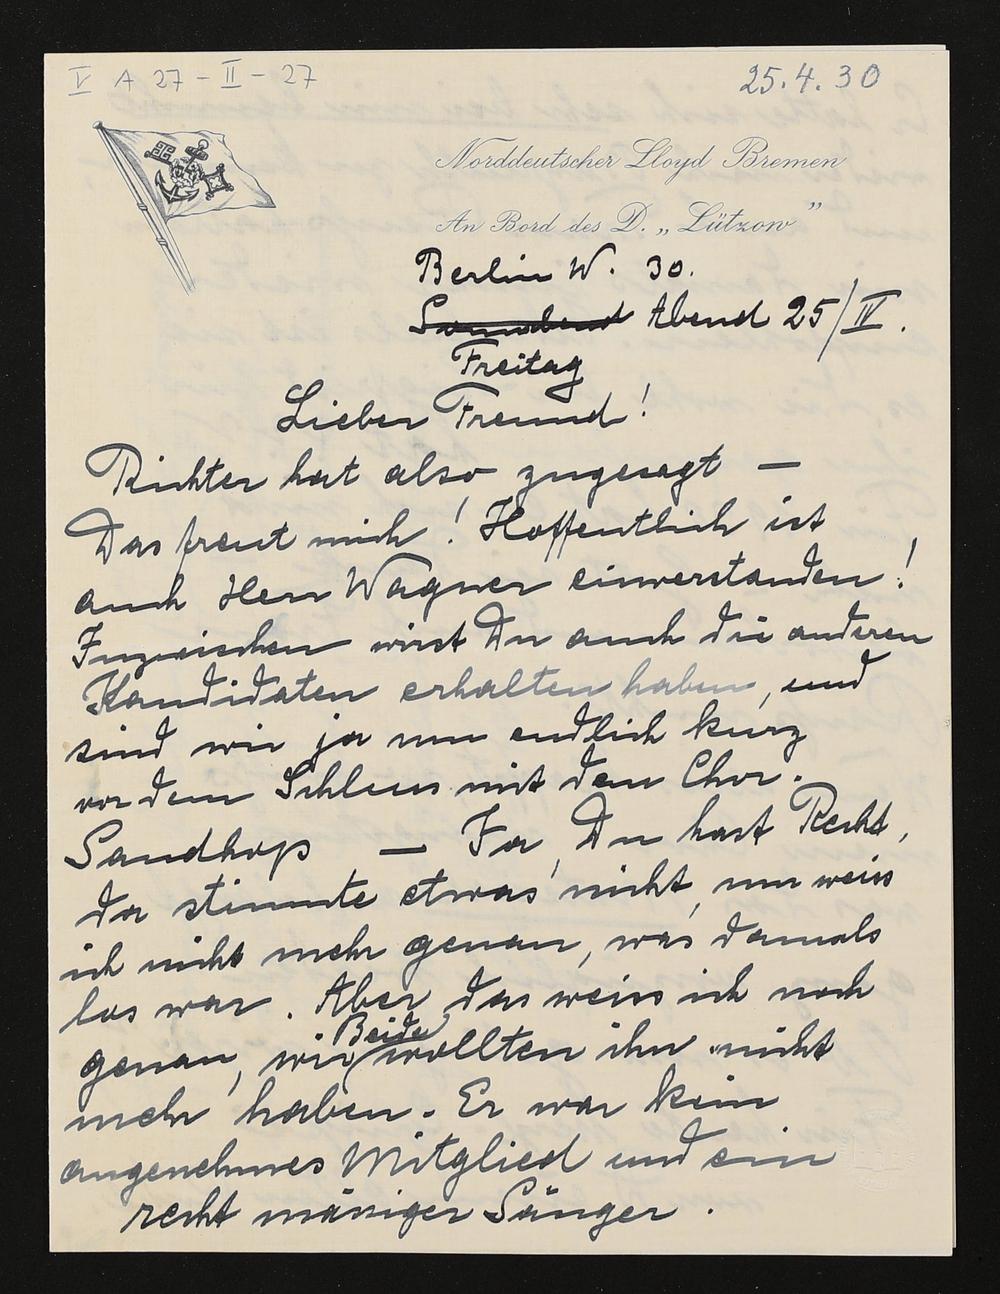 V A 27 - II - 27
25.4.30
Norddeutscher Lloyd Bremen
An Bord des D. „Lützow”
Berlin W. 30.
Sonnabend Abend 25/IV.
Freitag
Lieber Freund!
Richter hat also zugesagt —
Das freut mich! Hoffentlich ist
auch Herr Wagner einverstanden!
Inzwischen wirst Du auch die anderen
Kandidaten erhalten haben, und
sind wir ja nun endlich kurz
vor dem Schluss mit dem Chor.
Sandhop — Ja, Du hast Recht,
da stimmte etwas nicht, nur weiss
ich nicht mehr genau, was damals
los war. Aber das weiss ich noch
genau, wir Beide wollten ihn nicht
mehr haben. Er war kein
angenehmes Mitglied und ein
recht mässiger Sänger.